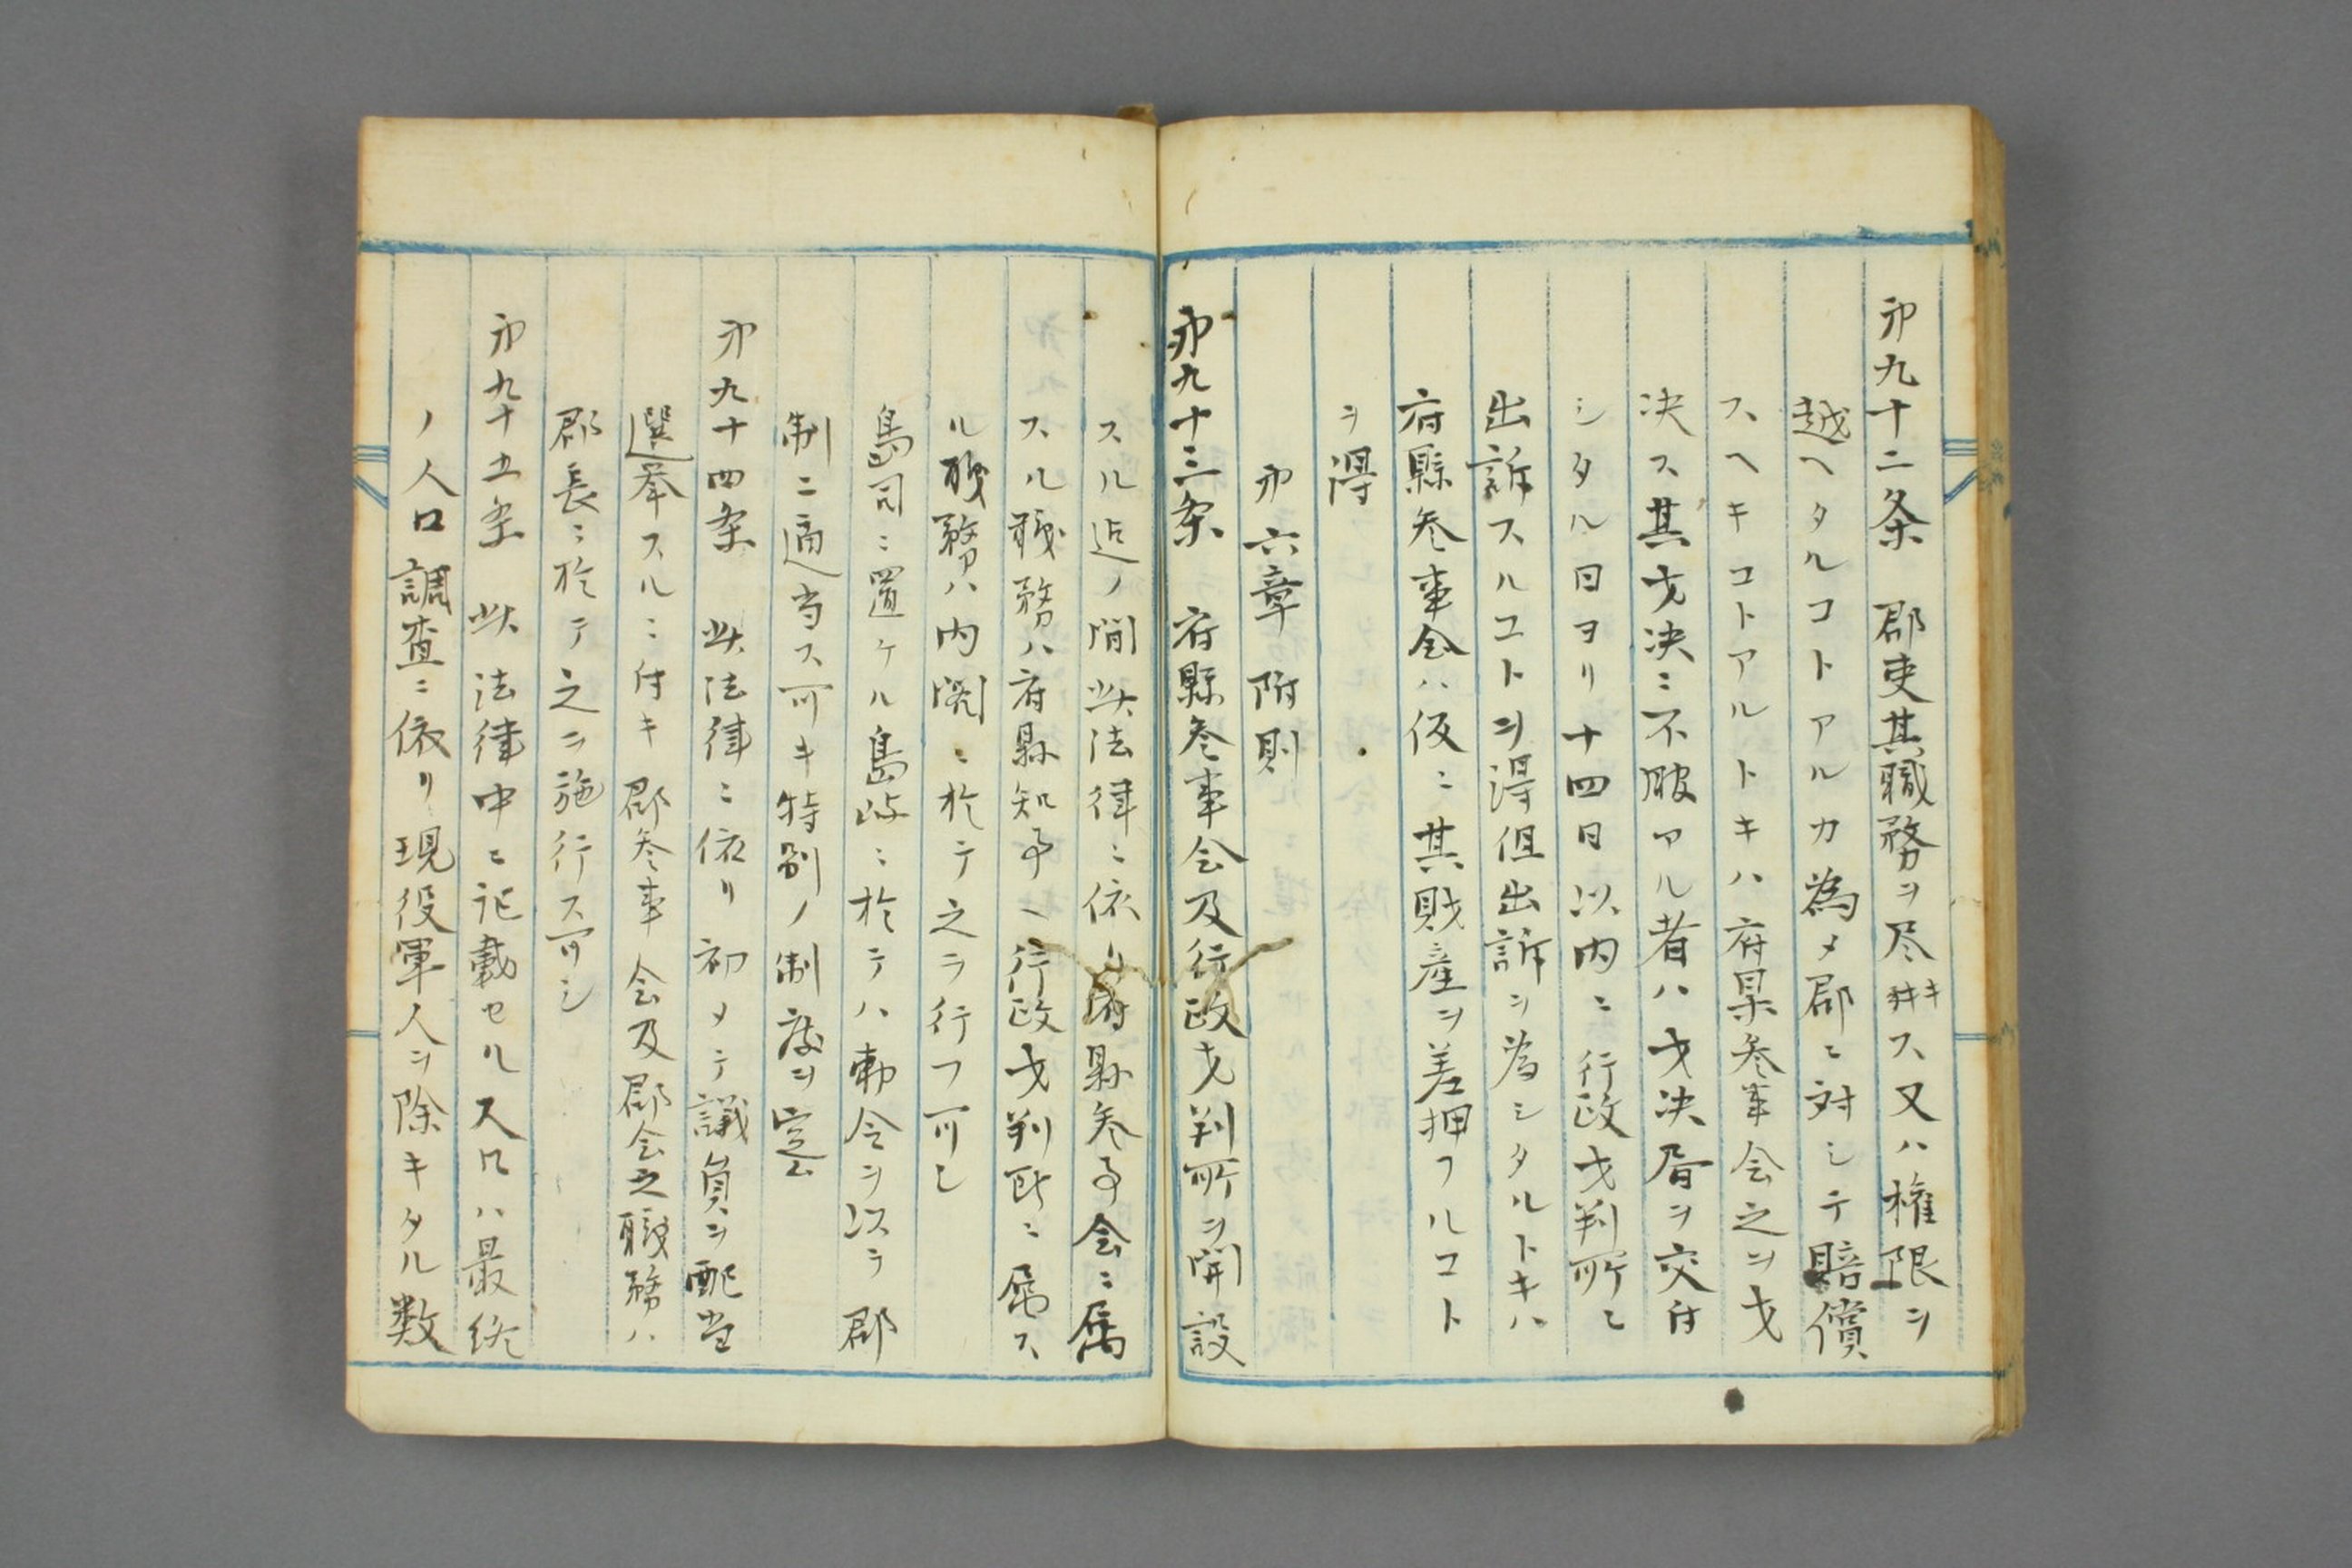 第九十二条　郡吏其職務ヲ尽サス又ハ権限ヲ
越ヘタルコトアルカ為メ郡ニ対シテ賠償
スヘキコトアルトキハ府県参事会之ヲ才
決ス其才決ニ不服アル者ハ才決書ヲ交付
シタル日ヨリ十四日以内ニ行政才判所ニ
出訴スルコトヲ得但出訴ヲ為シタルトキハ
府縣参事会ハ仮ニ其財産ヲ差押フルコト
ヲ得
第六章　附則
第九十三条　府縣参事会及行政才判所ヲ開設
スル迄ノ間此法律ニ依リ府縣参事会ニ属
スル職務ハ府縣知事、行政才判所ニ属ス
ル職務ハ内閣ニ於テ之ヲ行フ可シ
島司ヲ置ケル島嶼ニ於テハ勅令ヲ以テ郡
制ニ適当ス可キ特別ノ制度ヲ定ム
第九十四条　此法律ニ依リ初メテ議員ヲ配当
選挙スルニ付キ郡参事会及郡会之職務ハ
郡長ニ於テ之ヲ施行ス可シ
第九十五条　此法律中ニ記載セル人口ハ最終
ノ人口調査ニ依リ現役軍人ヲ除キタル数